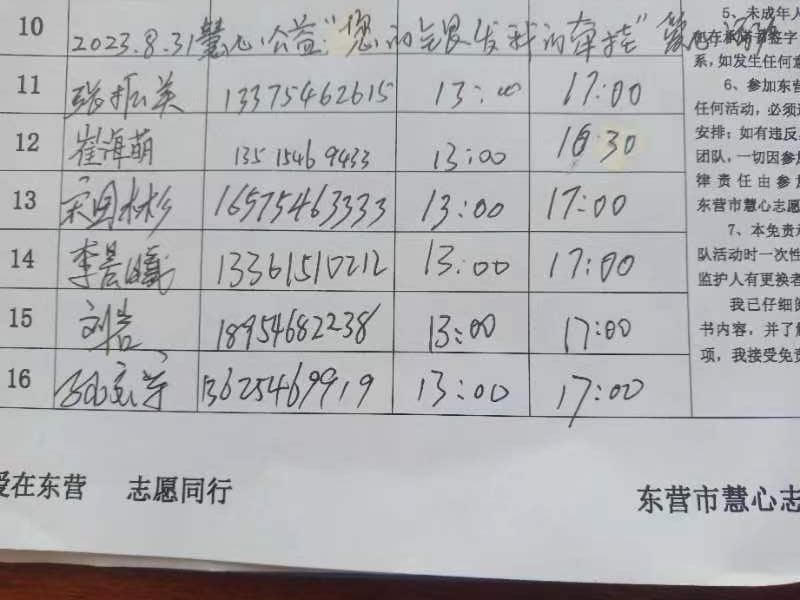 10 2023.8.31慧心公益"您的白银发我的牵挂"
11 张振英 13375462615 13:00 17:00
12 崔海萌 13515469433 13:00 16:30
13 宋国彬 16575463333 13:00 17:00
14 李景曦 13361510212 13:00 17:00
15 刘岩 18954682238 13:00 17:00
16 13625469919 13:00 17:00
爱在东营 志愿同行
东营市慧心志
5、未成年人
系,如发生任何意
6、参加东营
任何活动,必须
安排;如有违反
团队,一切因参
律责任由参
东营市慧心志愿
7、本免责
队活动时一次性
监护人有更换者
我已仔细
书内容,并了解
项,我接受免责